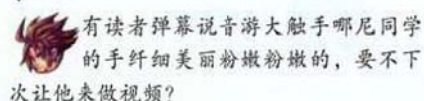 有读者弹幕说音游大触手哪尼同学
的手纤细美丽粉嫩粉嫩的，要不下
次让他来做视频？